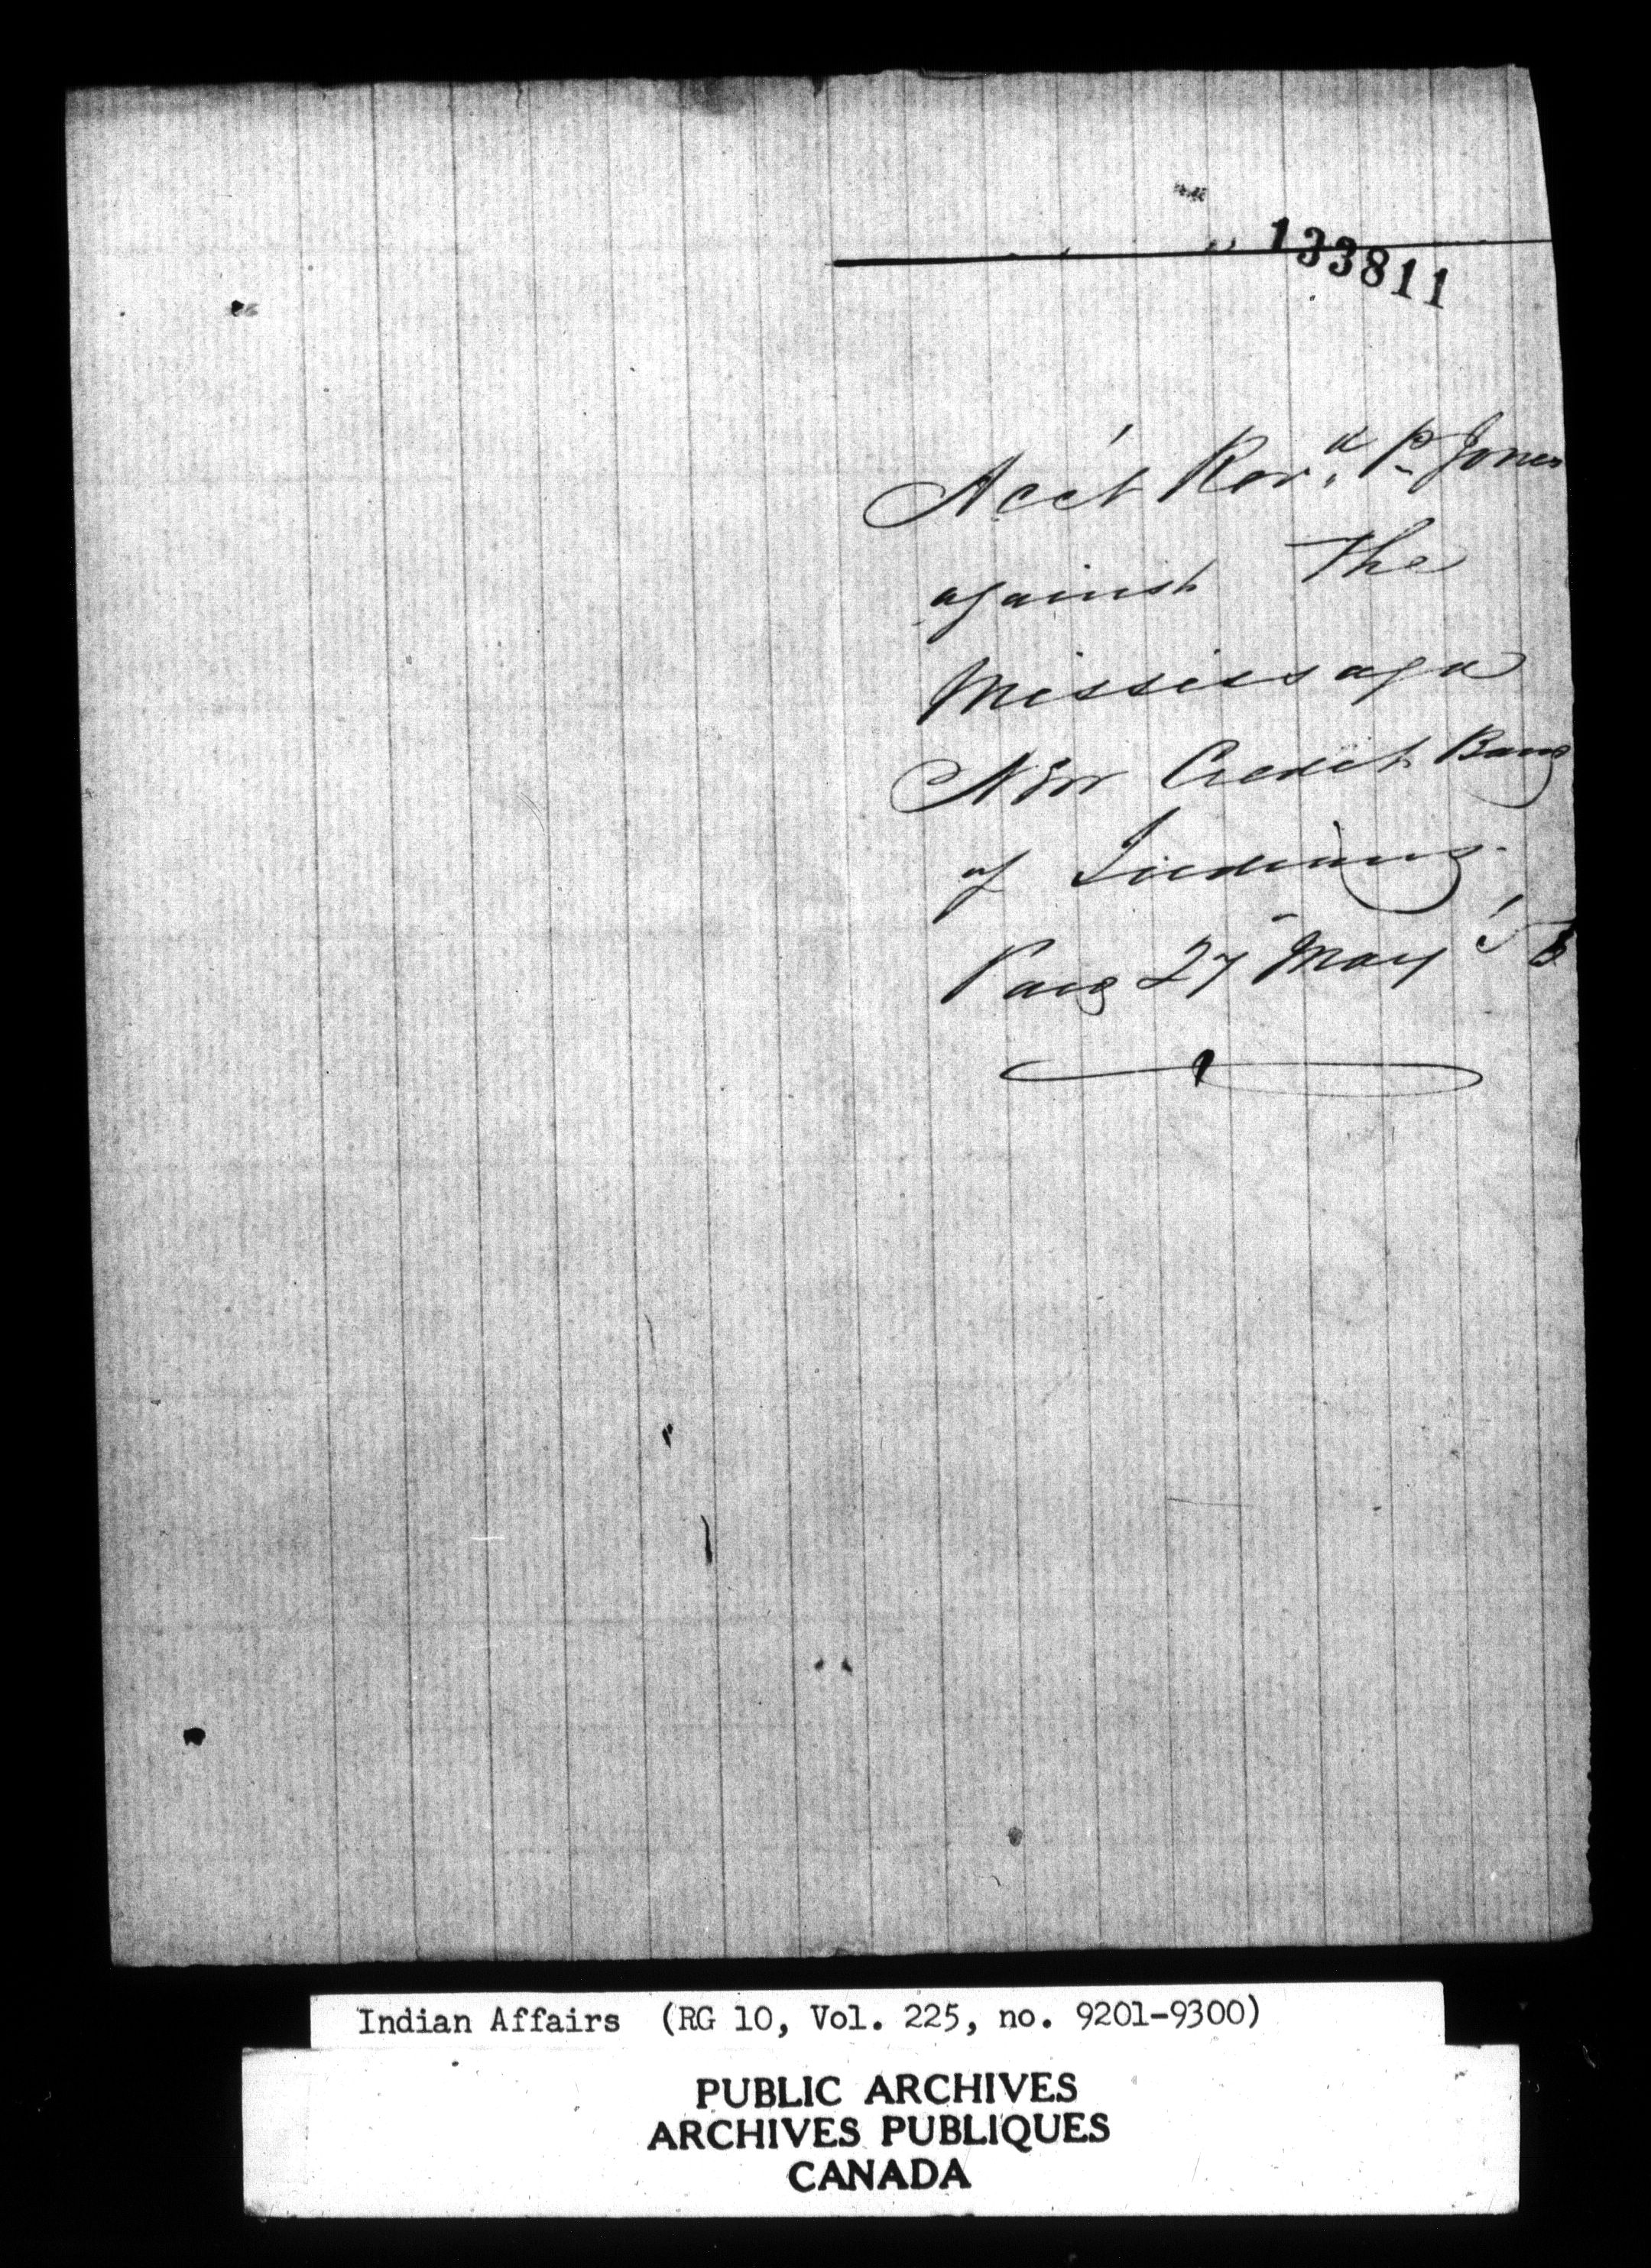 133811
Acc't Rev.d P. Jones
against The
Mississaga
New Credit Band
of Indians.
Paid 27 May
Indian Affairs (RG 10, Vol. 225, no. 9201-9300)
PUBLIC ARCHIVES
ARCHIVES PUBLIQUES
CANADA